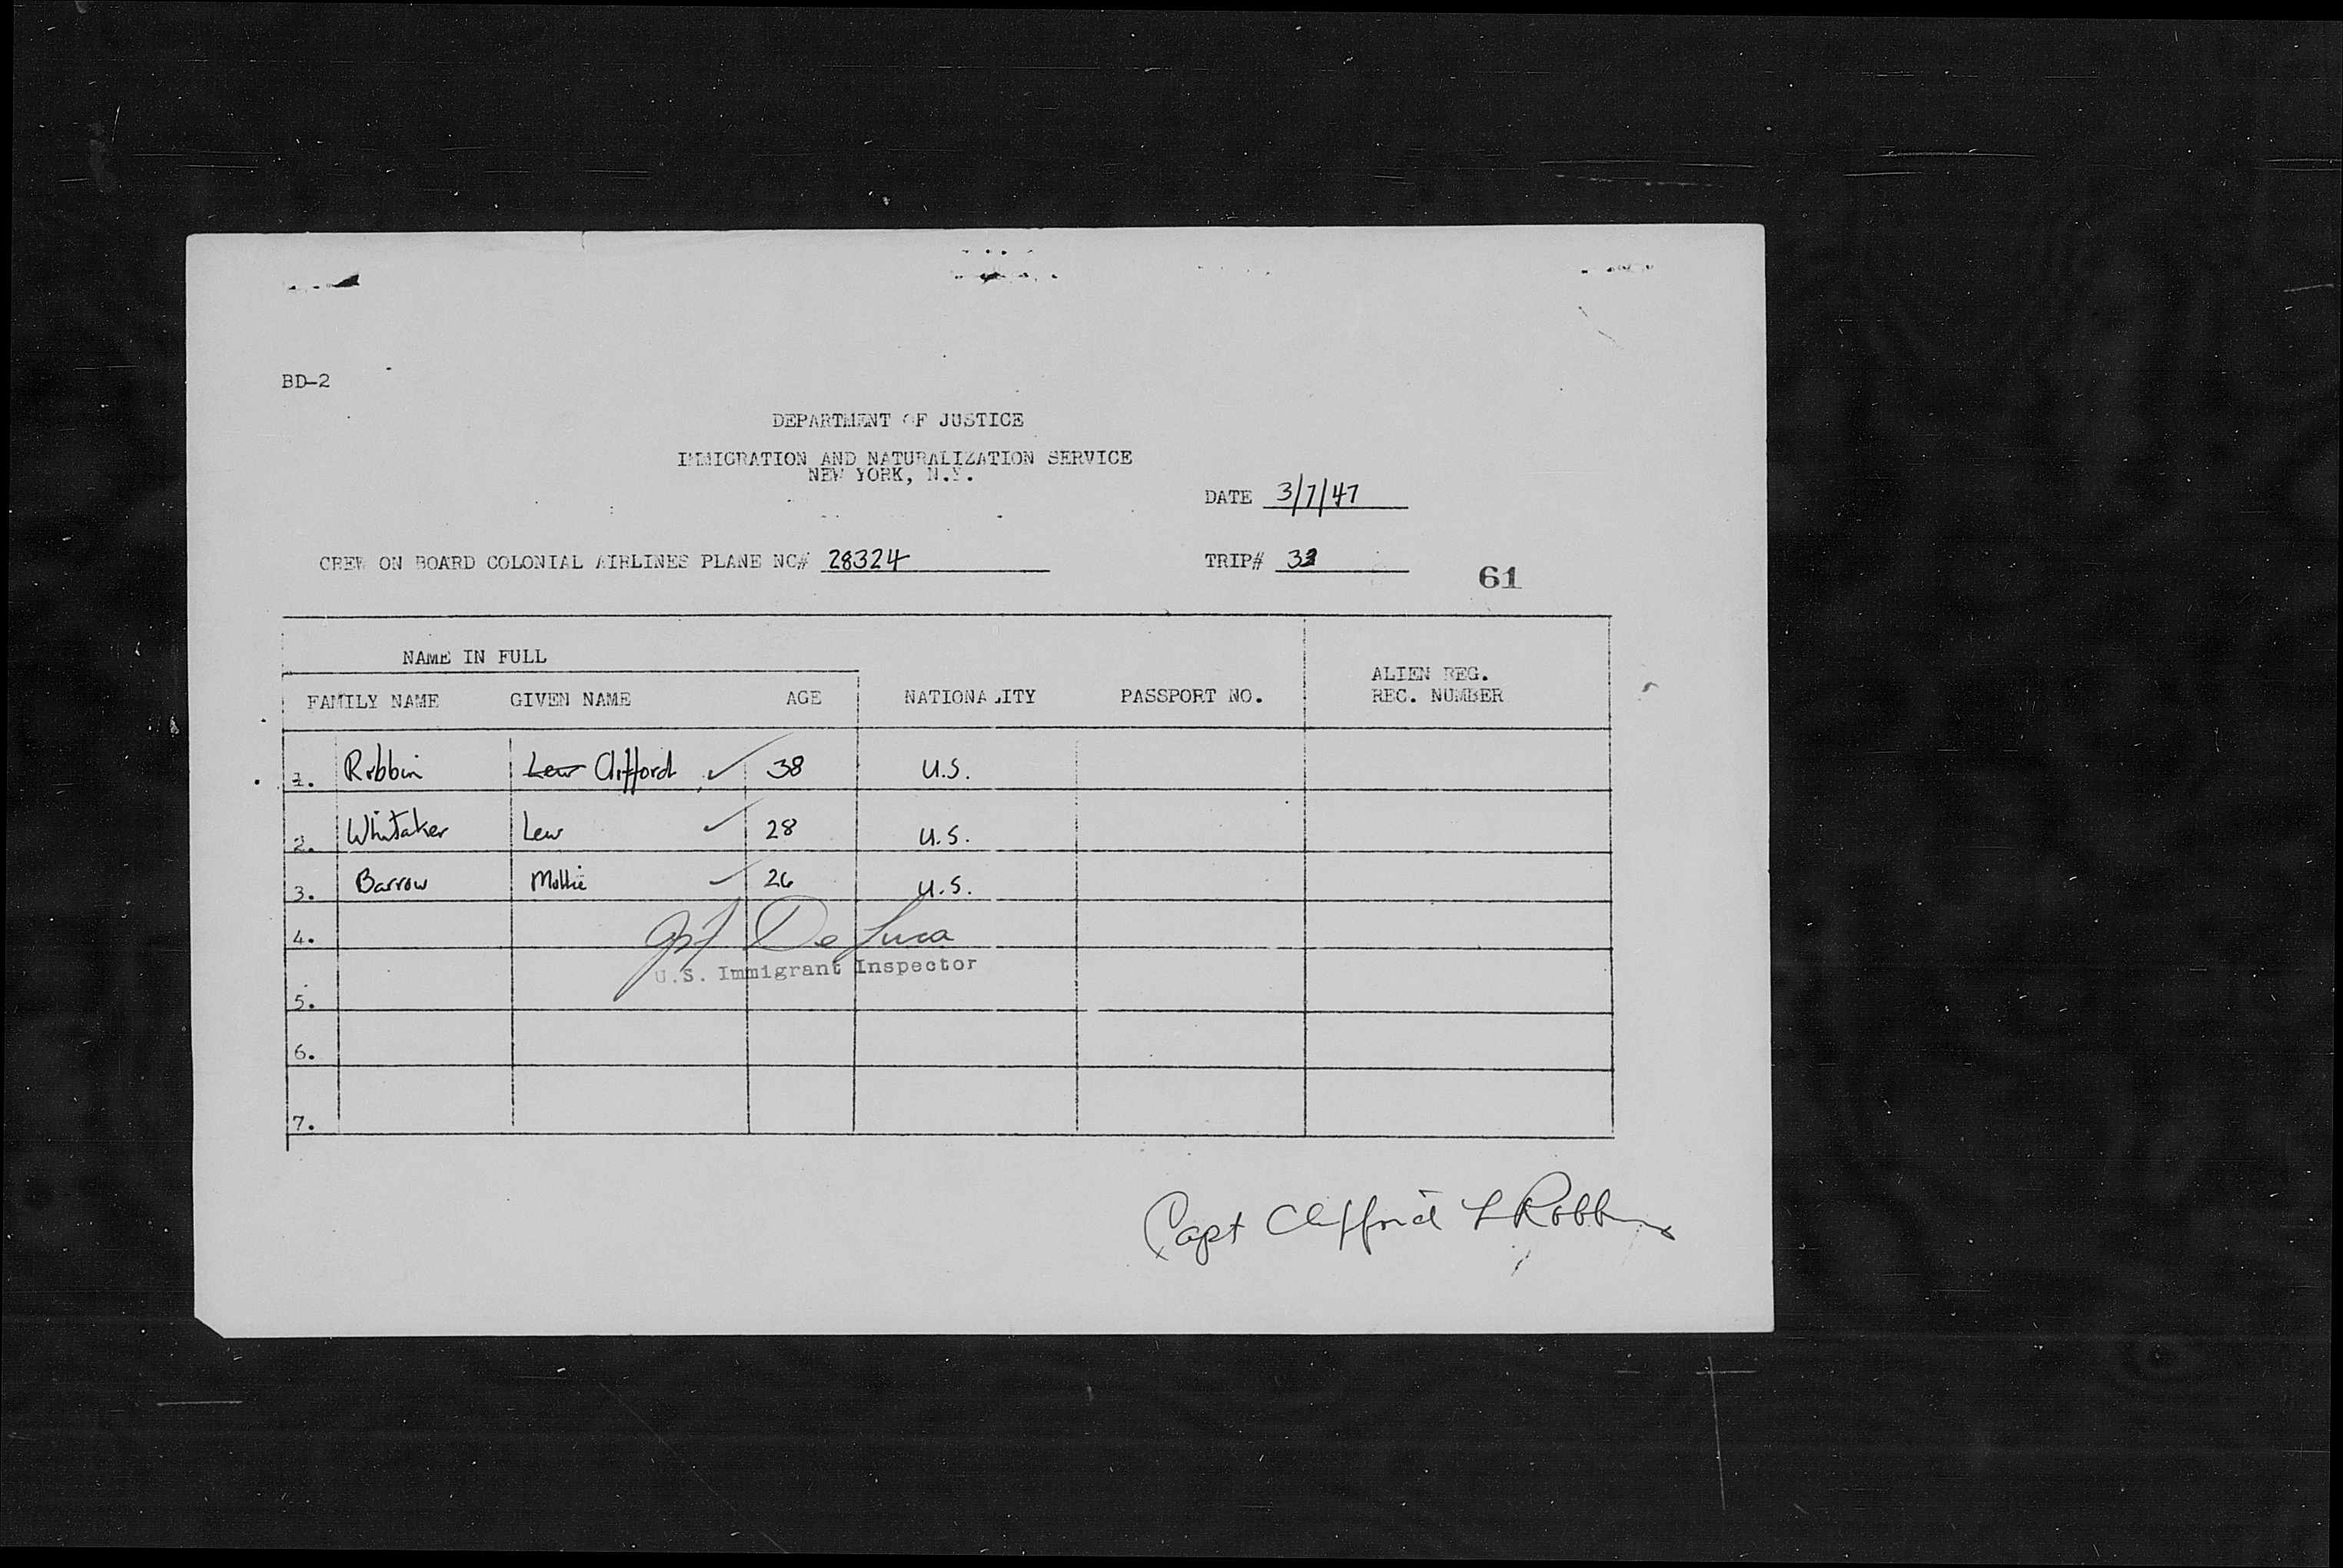 BD-2
DEPARTMENT OF JUSTICE
IMMIGRATION AND NATURALIZATION SERVICE
NEW YORK, N.Y.
DATE 3/7/47
CREW ON BOARD COLONIAL AIRLINES PLANE NC# 28324 TRIP# 33
61
NAME IN FULL
ALIEN REG.
FAMILY NAME GIVEN NAME AGE NATIONALITY PASSPORT NO. REC. NUMBER
1. Robbin Lew Clifford ✓ 38 U.S.
2. Whitaker Lew ✓ 28 U.S.
3. Barrow Mollie ✓ 26 U.S.
4. De Luca
U.S. Immigrant Inspector
5.
6.
7.
Capt Clifford L Robbins